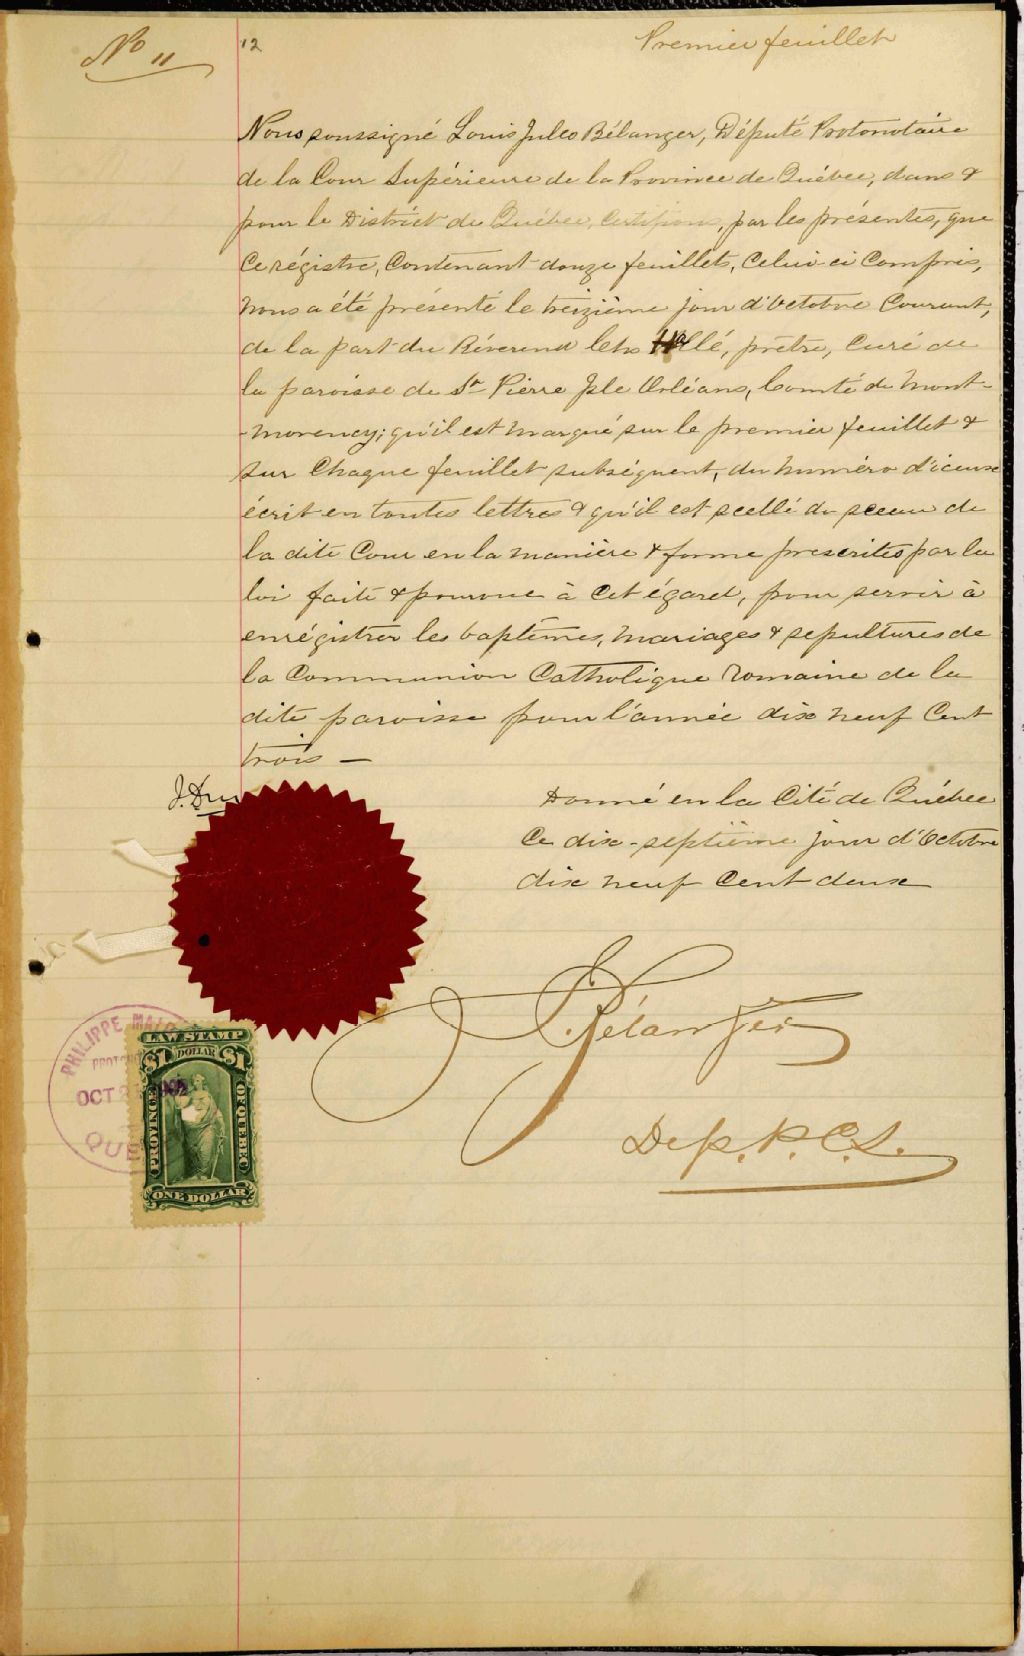 No 11
12
Premier feuillet
Nous soussigné Louis Jules Bélanger, Député Protonotaire
de la Cour Supérieure de la Province de Québec, dans &
pour le District de Québec, Certifions, par les présentes, que
Ce régistre, Contenant douze feuillets, Celui-ci Compris,
nous a été présenté le treizième jour d'Octobre Courant,
de la part du Révérend Chs Hallé, prêtre, Curé de
la paroisse de St Pierre Isle Orléans, Comté de Mont-
-morency; qu'il est marqué sur le premier feuillet &
sur Chaque feuillet subséquent, du numéro d'iceux
écrit en toutes lettres & qu'il est scellé du sceau de
la dite Cour en la manière & forme prescrites par la
loi faite & pourvue à Cet égard, pour servir à
enrégistrer les baptêmes, mariages & sepultures de
la Communion Catholique romaine de la
dite paroisse pour l'année dix neuf Cent
trois —
Donné en la Cité de Québec
Ce dix-septième jour d'Octobre
dix neuf Cent deux
J. Dru
L. J. Bélanger
Dep. P. C. S.
PHILIPPE
OCT 2 1902
QUE
LAW STAMP
$1 DOLLAR $1
PROVINCE OF QUEBEC
ONE DOLLAR